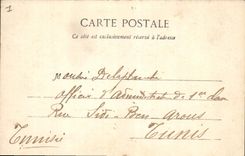 1
CARTE POSTALE
Ce côté est exclusivement réservé à l'adresse
Monsieur Delaplanche
Officier d'Administrat de 1ère classe
Rue Sidi-Ben-Arous
Tunis
(Tunisie)